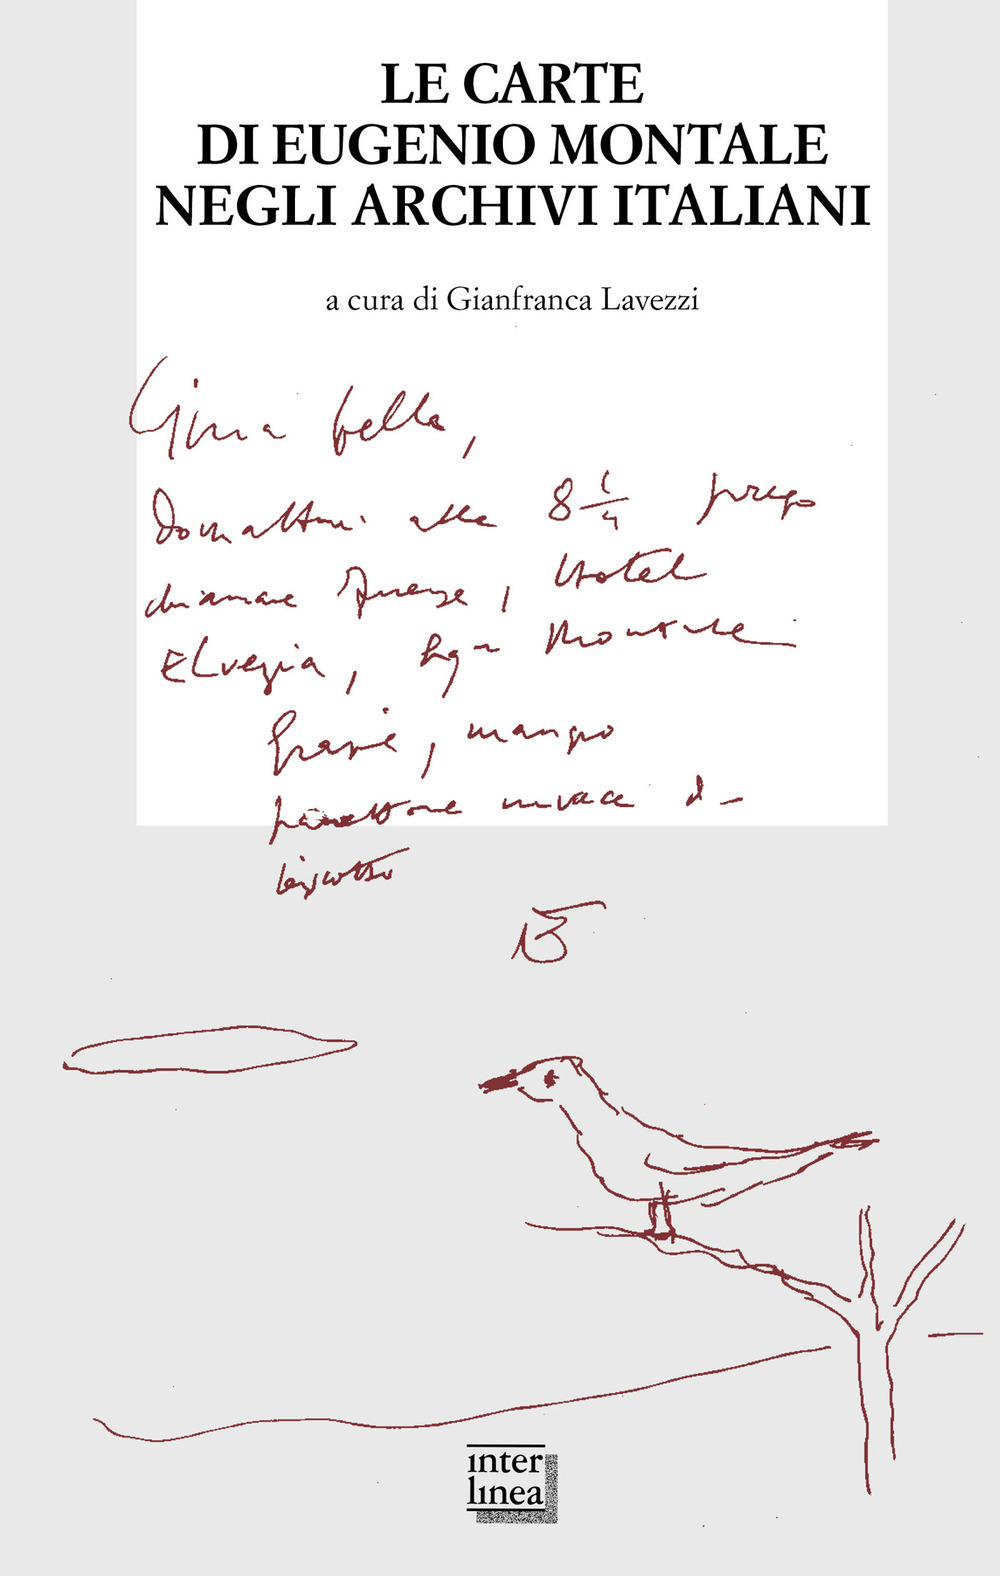 LE CARTE
DI EUGENIO MONTALE
NEGLI ARCHIVI ITALIANI
a cura di Gianfranca Lavezzi
Gina bella,
domattina alle 8 1/4 prego
chiamare Firenze, Hotel
Elvezia, Sig. Montale
Grazie, mangio
panettone invece di
biscotto
inter
linea